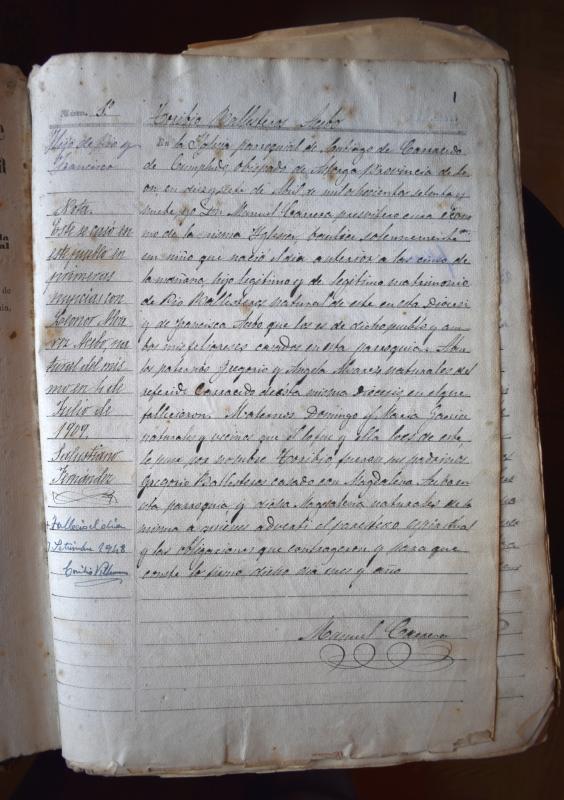 1
Núm. 1º
Toribio Ballesteros Acebo
Hijo de Pio y
Francisca
Nota
Este se casó en
este pueblo en
primeras
nuncias con
Leonor Alva
rez Acebo na
tural del mis
mo en 4 de
Julio de
1909
Salustiano
Fernández
Falleció el día
Setiembre 1948
En la Iglesia parroquial de Santiago de Carracedo
de Cumplido, obispado de Astorga Provincia de Le
on en diez y siete de Abril de mil ochocientos setenta y
nueve yo Don Manuel Carrera presvitero cura Econo
mo de la misma Iglesia, bautice solemnemente
un niño que nació el dia anterior a las cinco de
la mañana hijo legitimo y de legitimo matrimonio
de Pio Ballesteros natural de este en esta Diocesi
y de Francisca Acebo que lo es de dicho pueblo y am
bos mis feligreses casados en esta parroquia. Abue
los paternos Gregorio y Angela Alvarez naturales del
referido Carracedo de esta misma Diocesis en el que
fallecieron. Maternos Domingo y Maria Garcia
naturales y vecinos que el lo fue y ella lo es de este
le puse por nombre Toribio fueron sus padrinos
Gregorio Ballesteros casado con Magdalena Acebo en
esta parroquia y dicha Magdalena naturales de la
misma a quienes advertí el parentesco espiritual
y las obligaciones que contrageron y para que
conste lo firmo dicho dia mes y año
Manuel Carrera